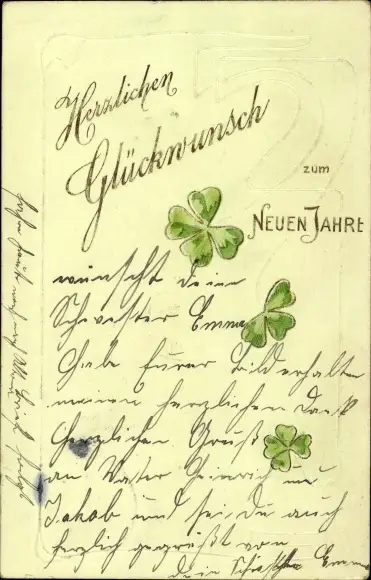 Herzlichen
Glückwunsch
zum
NEUEN JAHRE
wünscht deine
Schwester Emma
Habe Eurer Bild erhalten
meinen herzlichen Dank
Herzlichen Gruß
an Vater Heinrich und
Jakob und sei du auch
herzlich gegrüßt von
dein Schwester Emma